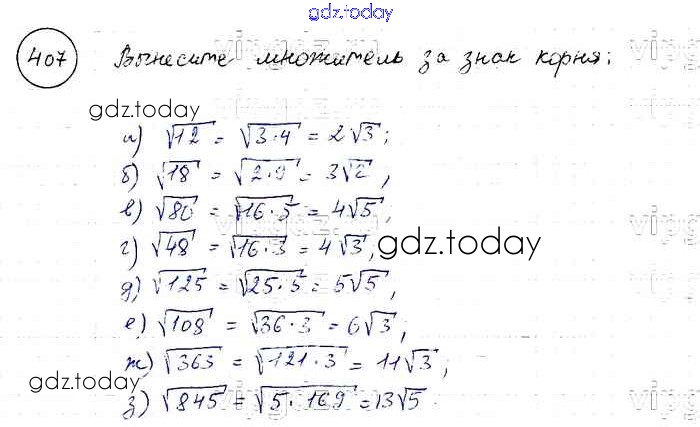 gdz.today
407 Вынесите множитель за знак корня:
gdz.today
а) √12 = √3·4 = 2√3;
б) √18 = √2·9 = 3√2,
в) √80 = √16·5 = 4√5,
г) √48 = √16·3 = 4√3, gdz.today
д) √125 = √25·5 = 5√5,
е) √108 = √36·3 = 6√3,
ж) √363 = √121·3 = 11√3;
gdz.today
з) √845 = √5·169 = 13√5